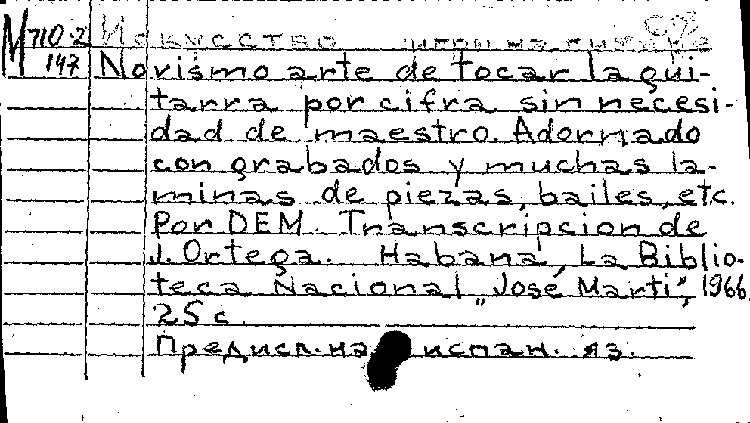 М710-2 Искусство игры на гитаре
147 Novismo arte de tocar la gui-
tarra por cifra sin necesi-
dad de maestro. Adornado
con grabados y muchas la-
minas de piezas, bailes, etc.
Por DEM. Transcripcion de
J. Ortega. Habana, La Biblio-
teca Nacional „José Marti", 1966.
25 с.
Предисл. на испан. яз.